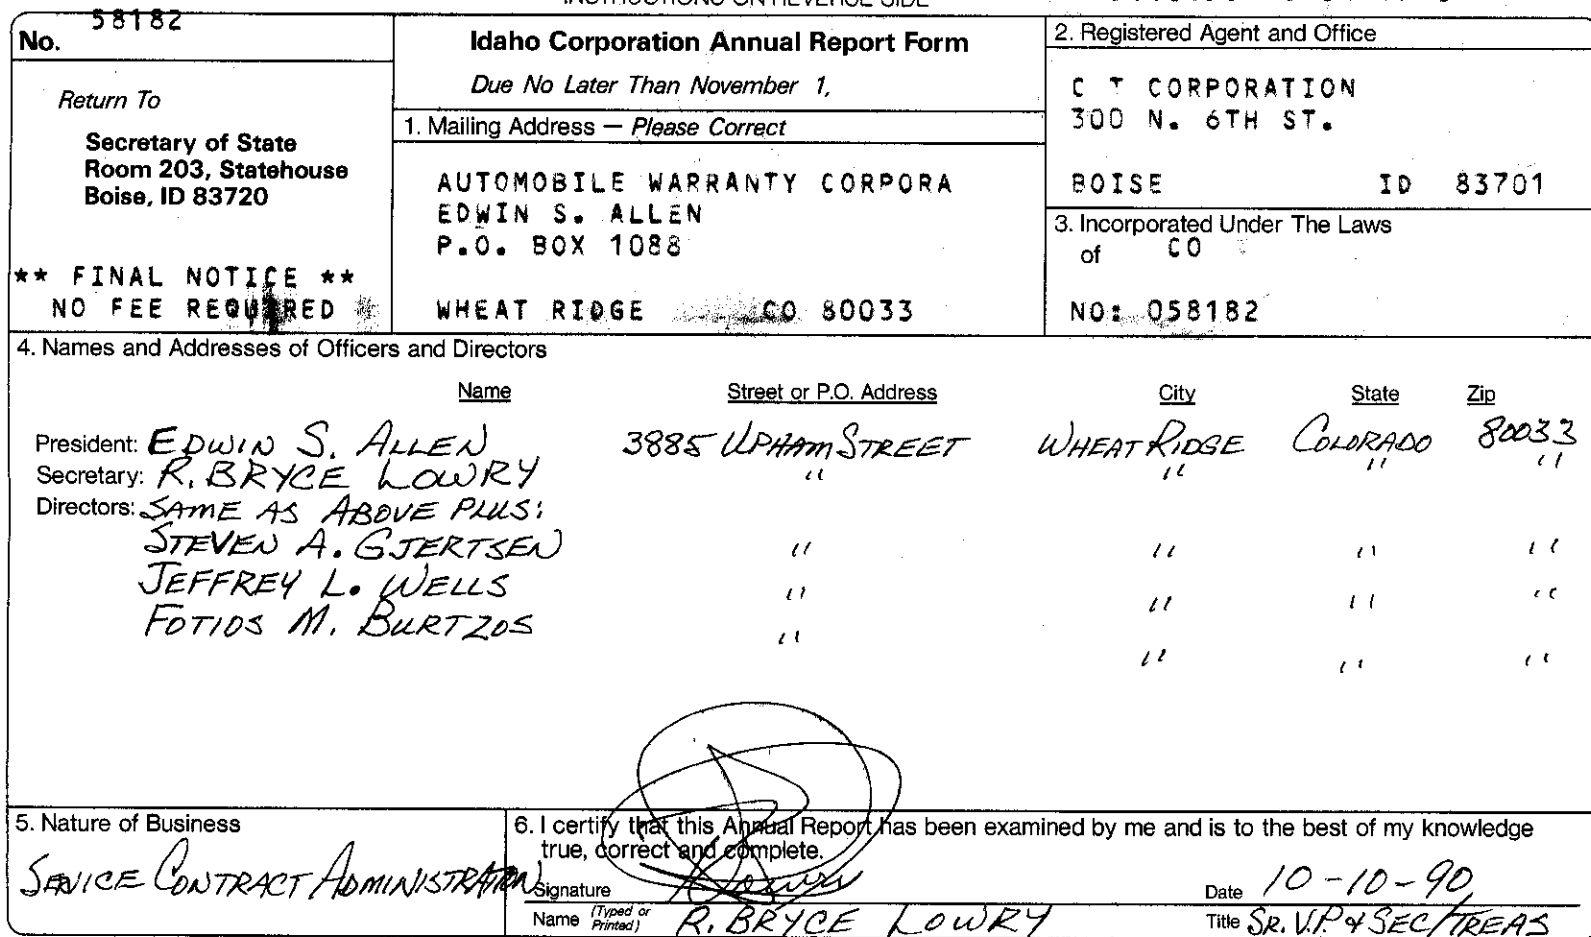 INSTRUCTIONS ON REVERSE SIDE
No. 58182
Return To
Secretary of State
Room 203, Statehouse
Boise, ID 83720
** FINAL NOTICE **
NO FEE REQUIRED
Idaho Corporation Annual Report Form
Due No Later Than November 1,
1. Mailing Address — Please Correct
AUTOMOBILE WARRANTY CORPORA
EDWIN S. ALLEN
P.O. BOX 1088
WHEAT RIDGE CO 80033
2. Registered Agent and Office
C T CORPORATION
300 N. 6TH ST.
BOISE ID 83701
3. Incorporated Under The Laws
of CO
NO: 058182
4. Names and Addresses of Officers and Directors
Name Street or P.O. Address City State Zip
President: EDWIN S. ALLEN 3885 UPHAM STREET WHEAT RIDGE COLORADO 80033
Secretary: R. BRYCE LOWRY " " " "
Directors: SAME AS ABOVE PLUS:
STEVEN A. GJERTSEN " " " "
JEFFREY L. WELLS " " " "
FOTIOS M. BURTZOS " " " "
5. Nature of Business
SERVICE CONTRACT ADMINISTRATION
6. I certify that this Annual Report has been examined by me and is to the best of my knowledge
true, correct and complete.
Signature Date 10-10-90
Name (Typed or Printed) R. BRYCE LOWRY Title SR. V.P. & SEC/TREAS